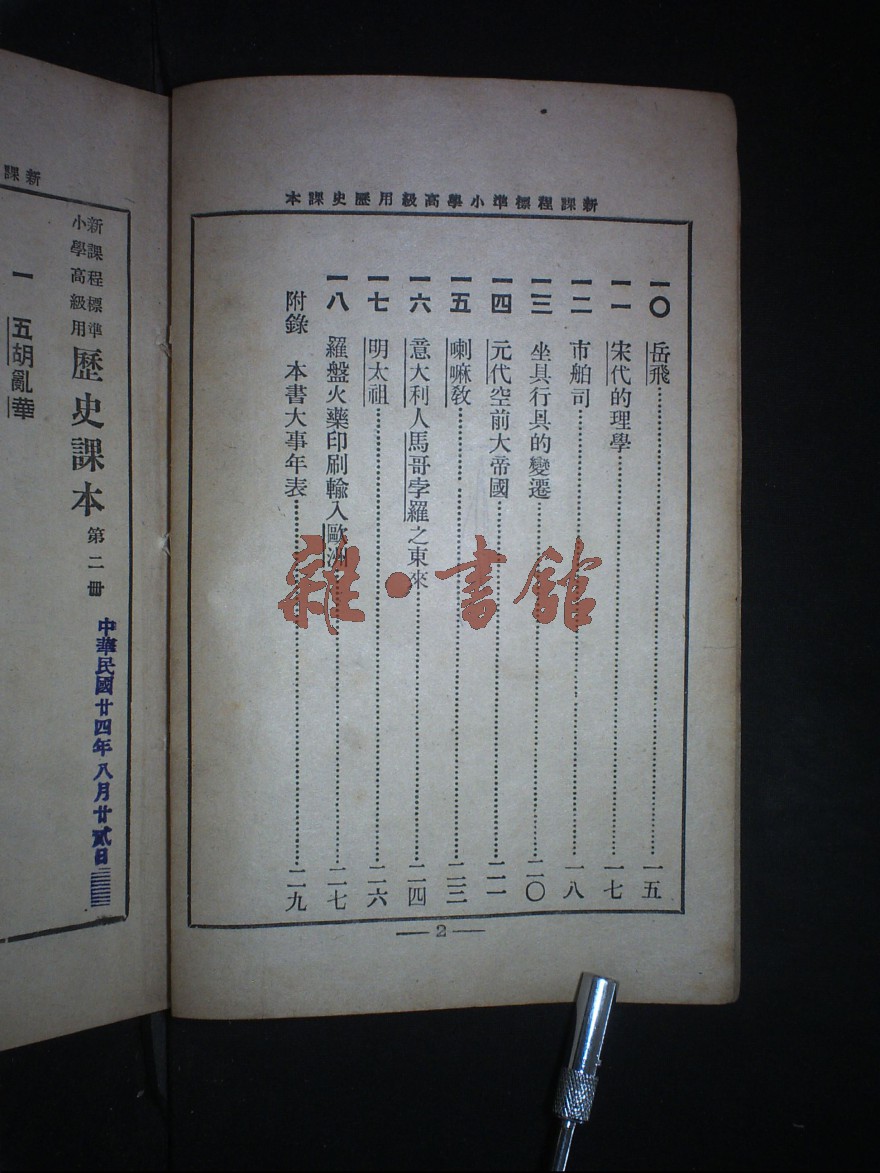 新課程標準小學高級用歷史課本
一〇 岳飛……一五
一一 宋代的理學……一七
一二 市舶司……一八
一三 坐具行具的變遷……二〇
一四 元代空前大帝國……二一
一五 喇嘛教……二三
一六 意大利人馬哥孛羅之東來……二四
一七 明太祖……二六
一八 羅盤火藥印刷輸入歐洲……二七
附錄 本書大事年表……二九
—2—
雜·書館
新課
新課程標準
小學高級用
歷史課本 第二冊
中華民國廿四年八月廿貳日
一 五胡亂華